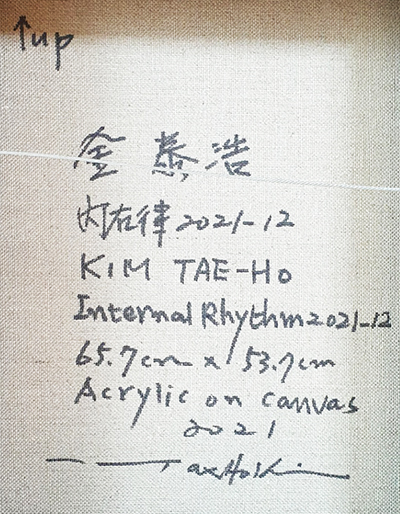 ↑up
金 泰 浩
内在律 2021-12
KIM TAE-HO
Internal Rhythm 2021-12
65.7cm x 53.7cm
Acrylic on canvas
2021
Tae Ho Kim